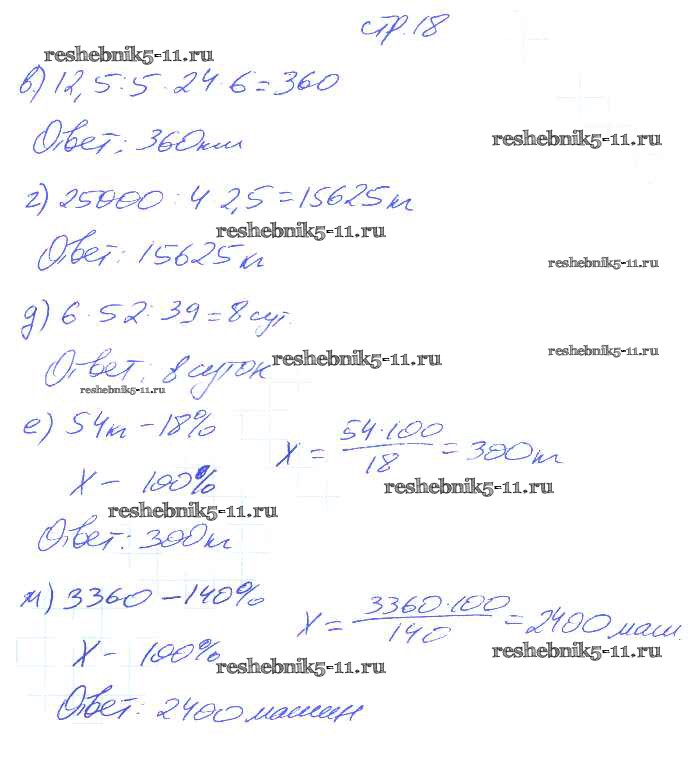 стр. 18
reshebnik5-11.ru
в) 12,5 : 5 · 24 · 6 = 360
Ответ: 360км
reshebnik5-11.ru
г) 25000 : 4 2,5 = 15625кг
reshebnik5-11.ru
Ответ: 15625кг
reshebnik5-11.ru
д) 6 · 52 : 39 = 8 сут.
reshebnik5-11.ru
Ответ: 8 суток
reshebnik5-11.ru
reshebnik5-11.ru
е) 54кг – 18%
X = 54·100/18 = 300кг
X – 100%
reshebnik5-11.ru
reshebnik5-11.ru
Ответ: 300кг
м) 3360 – 140%
X = 3360·100/140 = 2400 маш.
X – 100%
reshebnik5-11.ru
reshebnik5-11.ru
Ответ: 2400 машин